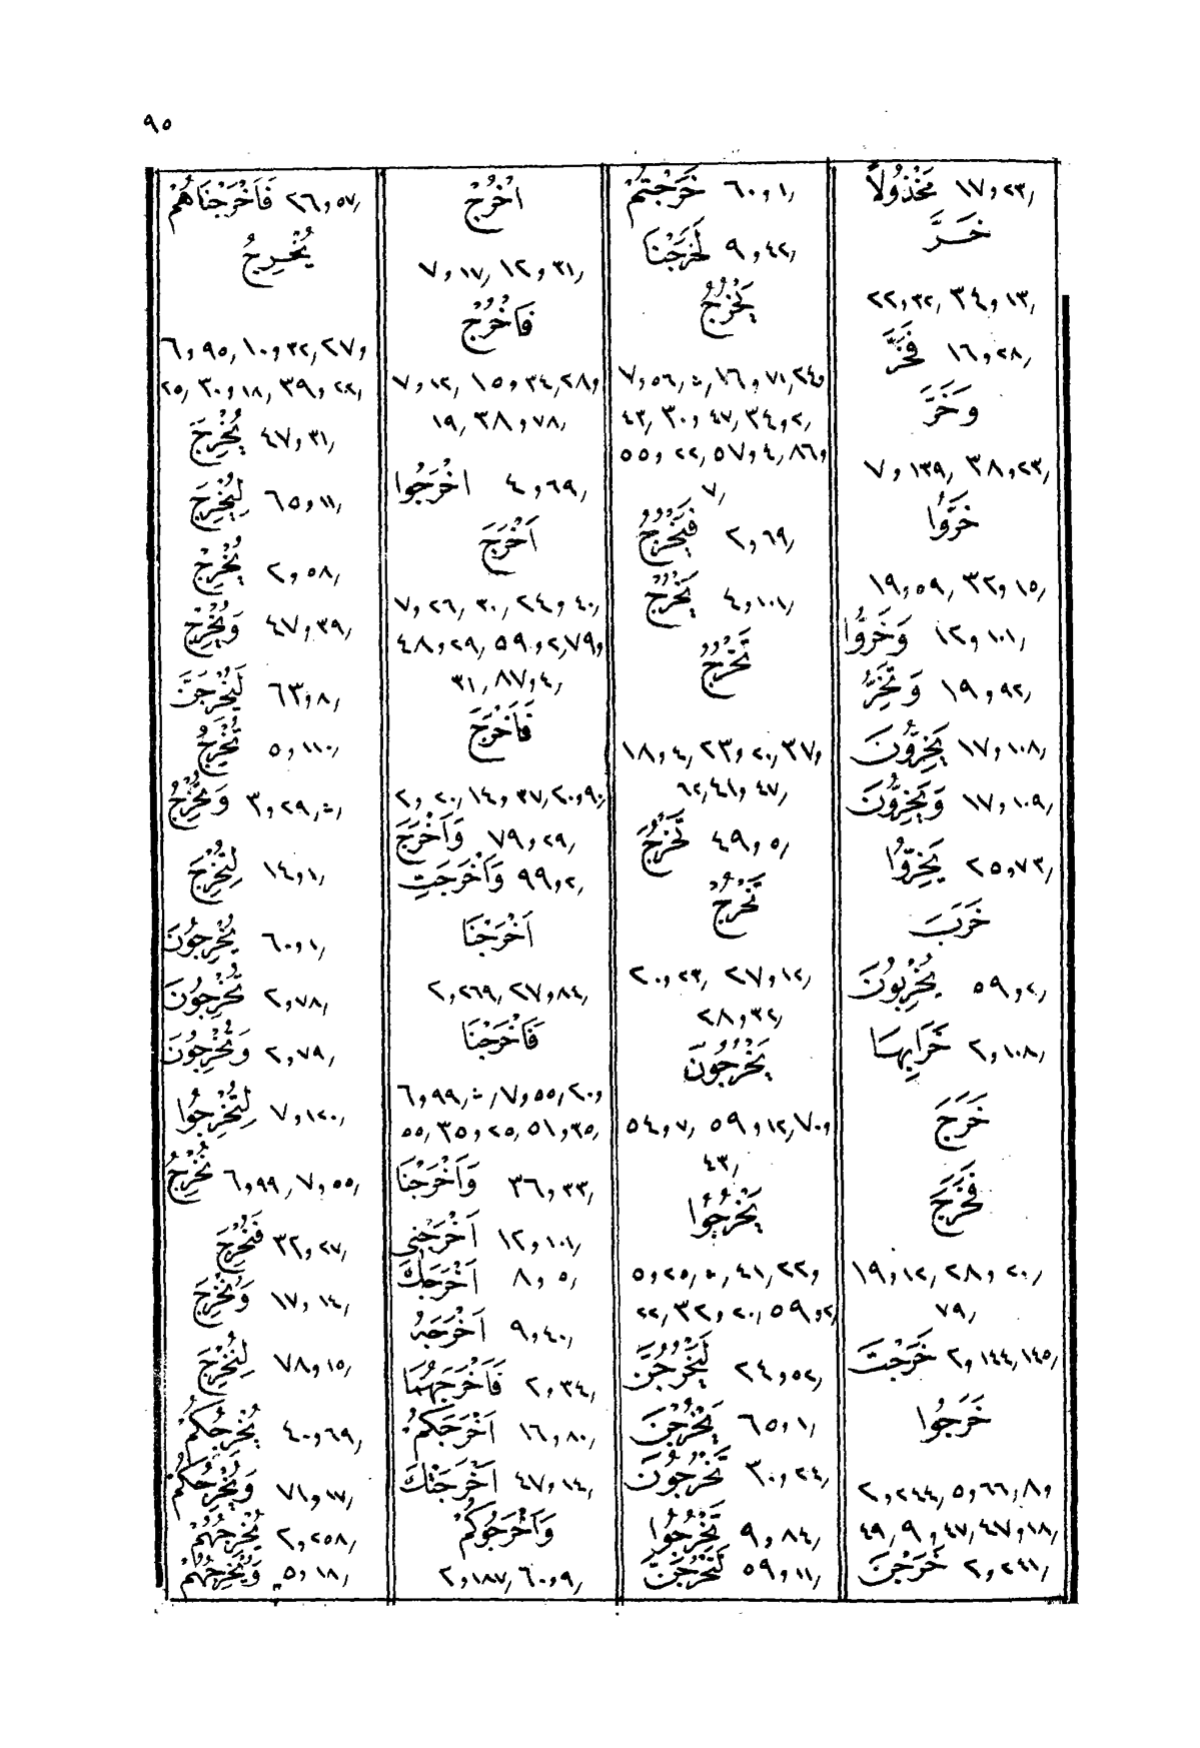 ٩٥
مَخْذُولاً ١٧,٢٣,
خَرَّ
٢٢,٣٢, ٣٤,١٣,
فَخَرَّ ١٦,٢٨,
وَخَرَّ
٧,١٣٩, ٣٨,٢٣,
خَرُّوا
١٩,٥٩, ٣٢,١٥,
وَخَرُّوا ١٢,١٠١,
وَتَخِرُّ ١٩,٩٢,
يَخِرُّونَ ١٧,١٠٨,
وَيَخِرُّونَ ١٧,١٠٩,
يَخِرُّوا ٢٥,٧٣,
خَرَبَ
يُخْرِبُونَ ٥٩,٢,
خَرَابِهَا ٢,١٠٨,
خَرَجَ
فَخَرَجَ
١٩,١٢, ٢٨,٢٠,
٧٩,
خَرَجْتَ ٢,١٤٤,١٤٥,
خَرَجُوا
٢,٢٤٤, ٥,٦٦, ٨,
٤٩, ٩,٤٧, ٤٧,١٨,
خَرَجْنَ ٢,٢٤١,
خَرَجْتُمْ ٦٠,١,
لَخَرَجْنَا ٩,٤٢,
يَخْرُجُ
٧,٥٦, ١٦,٧١, ٢٤,
٤٣, ٣٠,٤٧, ٣٤,٢,
٥٥,٢٢, ٥٧,٤, ٨٦,
٧,
فَيَخْرُجُ ٢,٦٩,
يَخْرُجْ ٤,١٠١,
تَخْرُجُ
١٨,٤, ٢٣,٢٠, ٣٧,
٦٢,٤١, ٤٧,
تَخْرُجَ ٤٩,٥,
تَخْرُجُ
٢٠,٢٣, ٢٧,١٢,
٢٨,٣٢,
يَخْرُجُونَ
٥٤,٧, ٥٩,١٢, ٧٠,
٤٣,
يَخْرُجُوا
٥,٢٥, ٤١, ٢٢,
٢٢, ٣٢,٢٠, ٥٩,٢,
لَيَخْرُجُنَّ ٢٤,٥٢,
يَخْرُجْنَ ٦٥,١,
تَخْرُجُونَ ٣٠,٢٤,
تَخْرُجُوا ٩,٨٤,
لَنَخْرُجَنَّ ٥٩,١١,
اُخْرُجْ
٧,١٧, ١٢,٣١,
فَاخْرُجْ
٧,١٢, ١٥,٣٤, ٢٨,
١٩, ٣٨,٧٨,
اخْرُجُوا ٤,٦٩,
اَخْرَجَ
٧,٢٦, ٣٠, ٢٤,٤٠,
٤٨,٢٩, ٥٩,٢, ٧٩,
٣١, ٨٧,٤,
فَاَخْرَجَ
٢,٢٠, ١٤,٣٧, ٢٠,٩٠,
وَاَخْرَجَ ٧٩,٢٩,
وَاَخْرَجَتِ ٩٩,٢,
اَخْرَجْنَا
٢,٢٦٩, ٢٧,٨٤,
فَاَخْرَجْنَا
٦,٩٩, ٧,٥٥, ٢٠,
٥٥, ٣٥,٢٥, ٥١,٣٥,
وَاَخْرَجْنَا ٣٦,٣٣,
اَخْرَجَنِي ١٢,١٠١,
اَخْرَجَكَ ٨,٥,
اَخْرَجَهُ ٩,٤٠,
فَاَخْرَجَهُمَا ٢,٣٤,
اَخْرَجَكُمْ ١٦,٨٠,
اَخْرَجَتْكَ ٤٧,١٤,
وَاَخْرَجُوكُمْ
٢,١٨٧, ٦٠,٩,
فَاَخْرَجْنَاهُمْ ٢٦,٥٧,
يُخْرِجُ
٦,٩٥, ١٠,٣٢, ٢٧,
٢٥, ٣٠,١٨, ٣٩,٢٢,
يُخْرِجَ ٤٧,٣١,
لِيُخْرِجَ ٦٥,١١,
يُخْرِجْ ٢,٥٨,
وَيُخْرِجْ ٤٧,٣٩,
لَيُخْرِجَنَّ ٦٣,٨,
تُخْرِجُ ٥,١١٠,
وَتُخْرِجُ ٣,٢٩,
لِتُخْرِجَ ١٤,١,
يُخْرِجُونَ ٦٠,١,
تُخْرِجُونَ ٢,٧٨,
وَتُخْرِجُونَ ٢,٧٩,
لِتُخْرِجُوا ٧,١٢٠,
نُخْرِجُ ٦,٩٩, ٧,٥٥,
فَنُخْرِجُ ٣٢,٢٧,
وَنُخْرِجُ ١٧,١٤,
لِنُخْرِجَ ٧٨,١٥,
يُخْرِجُكُمْ ٤٠,٦٩,
وَيُخْرِجُكُمْ ٧١,١٧,
يُخْرِجُهُمْ ٢,٢٥٨,
وَيُخْرِجُهُمْ ٥,١٨,